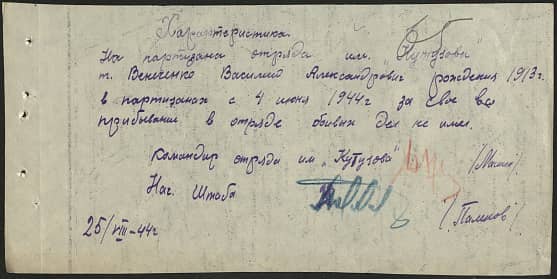 Характеристика
На партизана отряда им. "Кутузова"
т. Вениченко Василий Александрович рождения 1913г.
в партизанах с 4 июня 1944г за свое все
пребывание в отряде боевых дел не имел.
Командир отряда им "Кутузова"
Нач. Штаба
25/VIII-44г